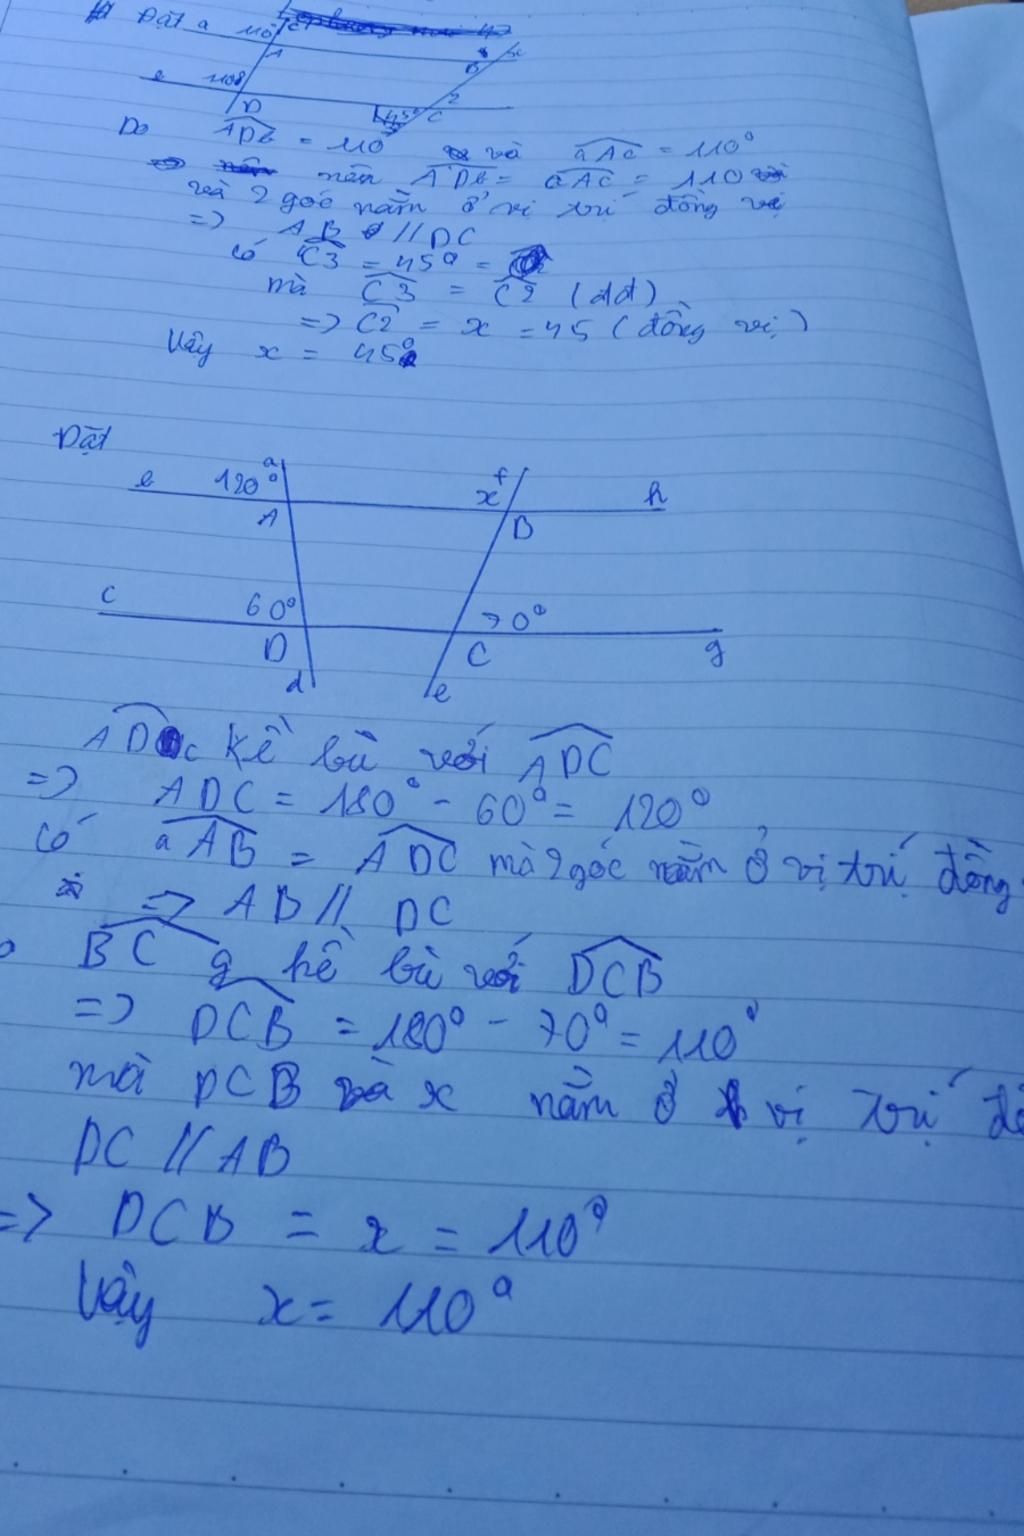 Đặt a 110° c
A
B
x
b 110°
D
45° C 2
3
Do ADb = 110 và aAc = 110°
nên ADb = aAc = 110
và 2 góc nằm ở vị trí đồng vị
=> AB // DC
có C3 = 45° =
mà C3 = C2 (đđ)
=> C2 = x = 45 (đồng vị)
Vậy x = 45°
Đặt
b 120° a
A
x f
B
h
c 60°
D
d
70°
C
e
g
ADc kề bù với ADC
=> ADC = 180° - 60° = 120°
Có aAB = ADC mà 2 góc nằm ở vị trí đồng
=> AB // DC
BCg kề bù với DCB
=> DCB = 180° - 70° = 110°
mà DCB và x nằm ở vị trí đồ
DC // AB
=> DCB = x = 110°
Vậy x = 110°